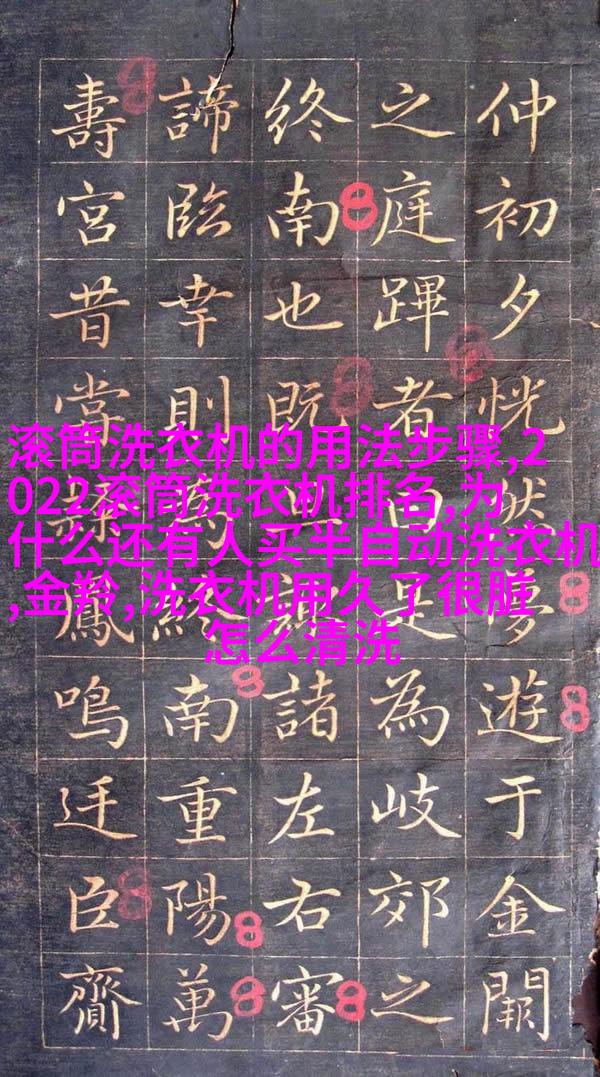 滚筒洗衣机的用法步骤,2
022滚筒洗衣机排名,为
什么还有人买半自动洗衣机
,金羚,洗衣机用久了很脏
怎么清洗
仲初夕恍然夢遊于金闕
之庭蹕者曰是為岐郊之
終南也既諸左右審
諦臨幸則終南重陽萬
壽宮昔嘗鳳鳴迋臣齎